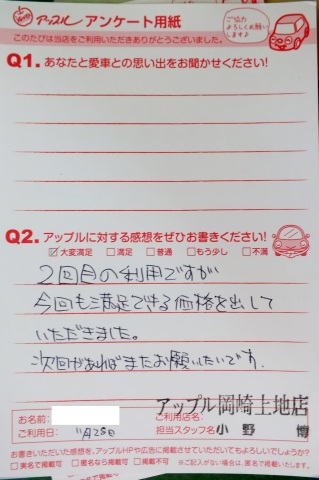 アップル アンケート用紙
ご協力
よろしくお願い
します♪
このたびは当店をご利用いただきありがとうございました。
Q1. あなたと愛車との思い出をお聞かせください!
Q2. アップルに対する感想をぜひお書きください!
☑大変満足 □満足 □普通 □もう少し □不満
2回目の利用ですが
今回も満足できる価格を出して
いただきました。
次回があればまたお願いしたいです.
アップル岡崎上地店
お名前: ご利用店名:
ご利用日: 11月25日 担当スタッフ名: 小野 博
お書きいただいた感想を、アップルHPや広告に掲載させていただいてもよろしいでしょうか?
□実名で掲載可 □匿名なら掲載可 □掲載不可 ※ご記入がない場合は、匿名で掲載いたします。